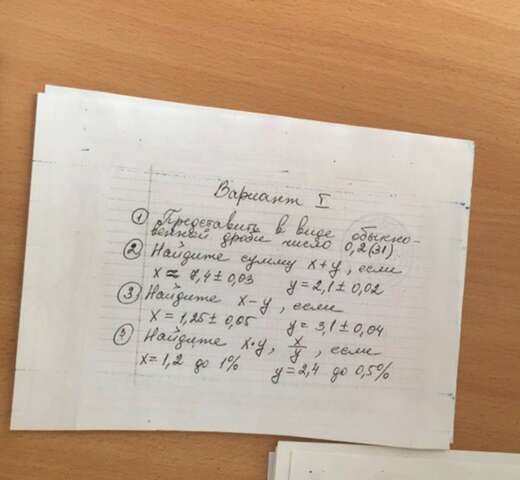 Вариант I
① Представить в виде обыкно-
венной дроби число 0,2(31)
② Найдите сумму x+y, если
x ≈ 7,4 ± 0,03 y = 2,1 ± 0,02
③ Найдите x-y, если
x = 1,25 ± 0,05 y = 3,1 ± 0,04
Найдите x·y, x/y, если
x = 1,2 до 1% y = 2,4 до 0,5%